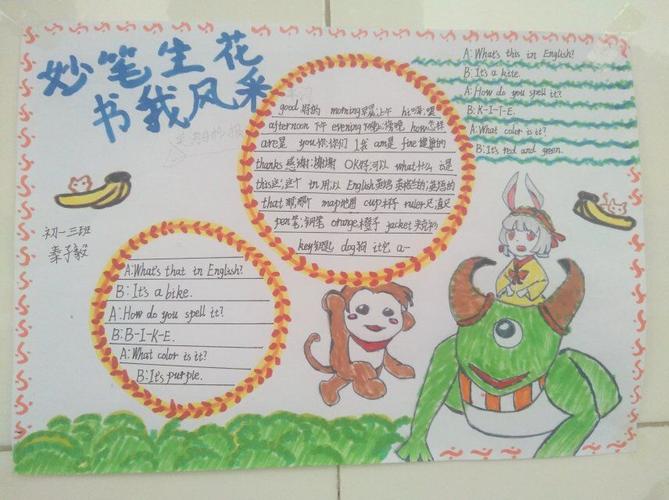 妙笔生花
书我风采
A: What's this in English?
B: It's a kite.
A: How do you spell it?
B: K-I-T-E.
A: What color is it?
B: It's red and green.
good 好的 morning 早晨;上午 hi 嗨;喂
afternoon 下午 evening 晚上;傍晚 how 怎样
are 是 you 你;你们 I 我 am 是 fine 健康的
thanks 感谢;谢谢 OK 好;可以 what 什么 is 是
this 这;这个 in 用;以 English 英语 英格兰的;英语的
that 那;那个 map 地图 cup 杯子 ruler 尺;直尺
pen 笔;钢笔 orange 橙子 jacket 夹克衫
key 钥匙 dog 狗 it 它 a 一
初一三班
秦子毅
A: What's that in English?
B: It's a bike.
A: How do you spell it?
B: B-I-K-E.
A: What color is it?
B: It's purple.